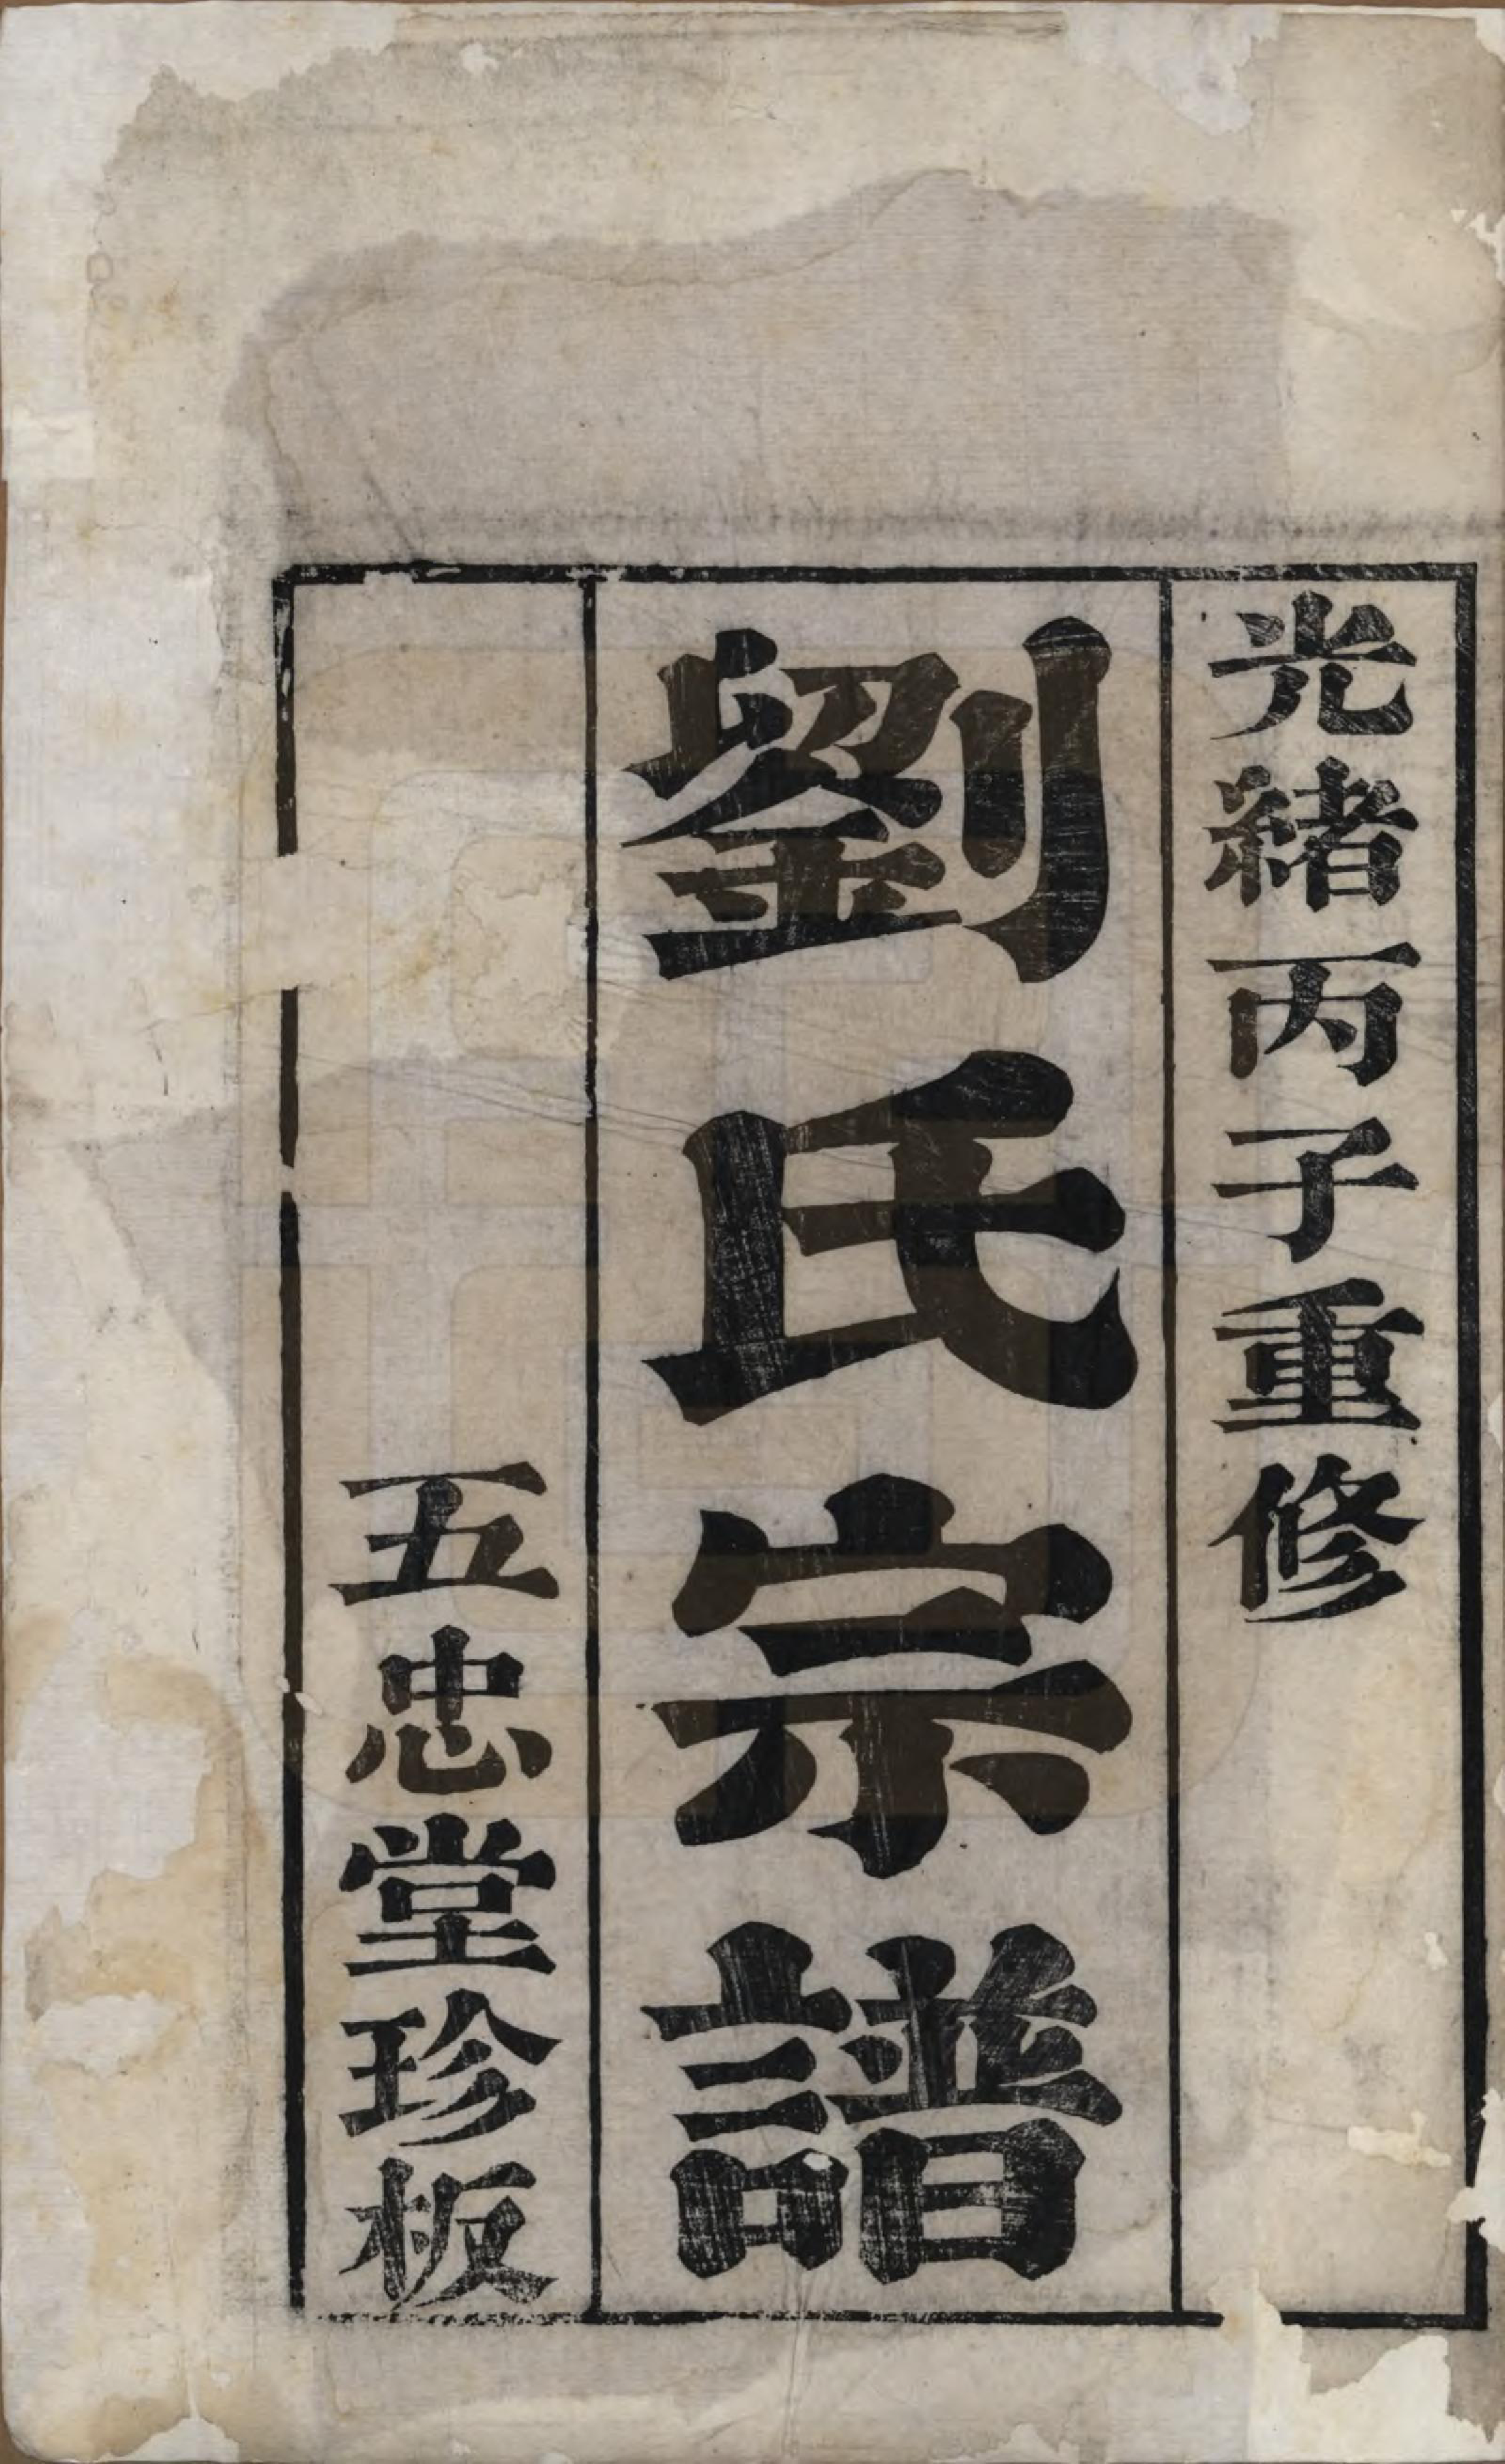 光緒丙子重修
劉氏宗譜
五忠堂珍板